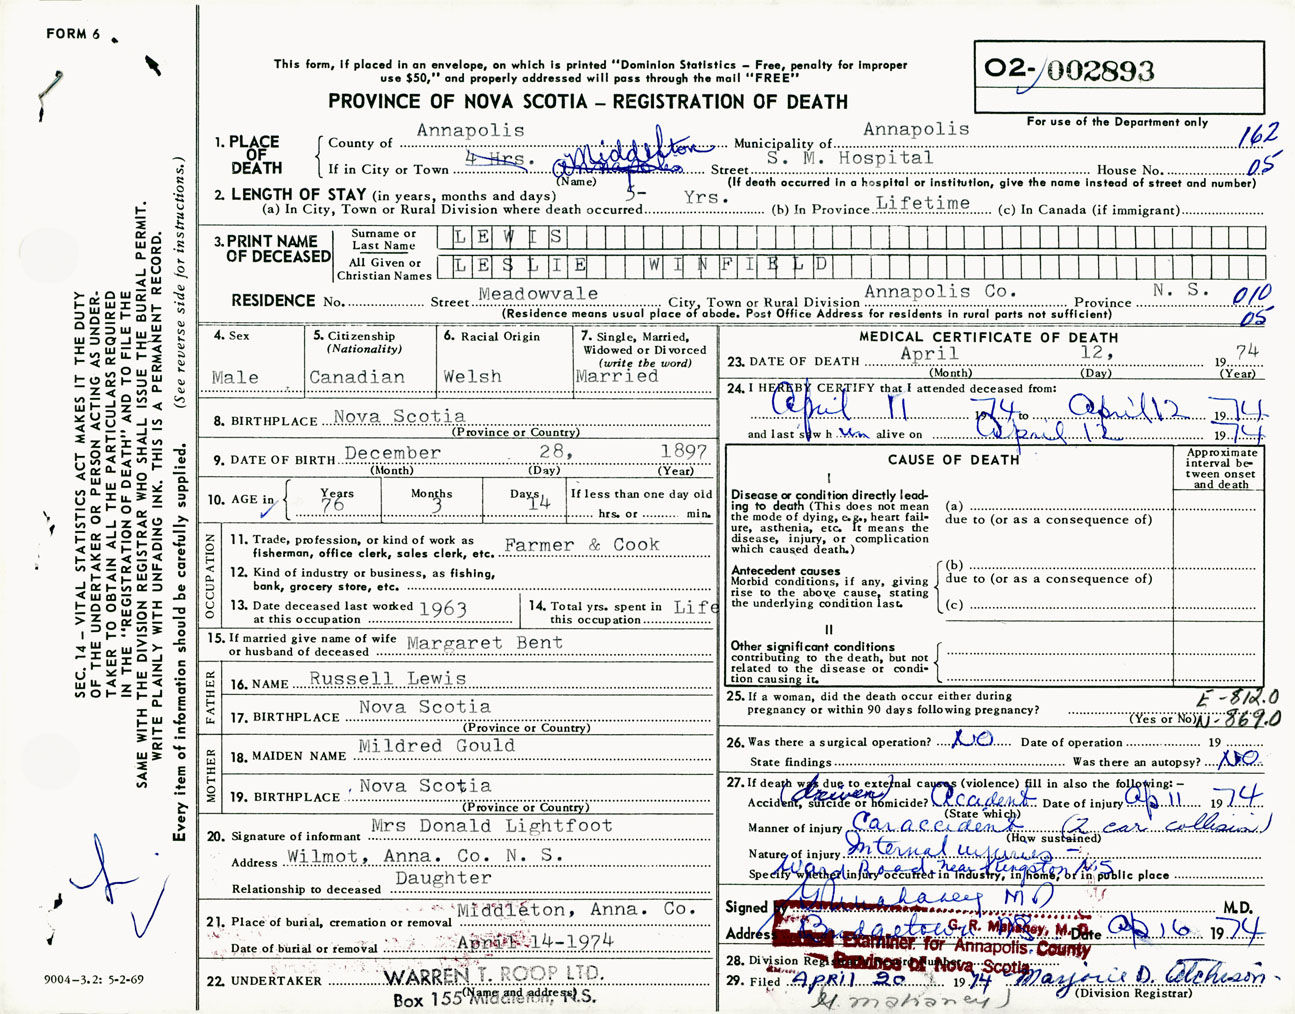 FORM 6
This form, if placed in an envelope, on which is printed "Dominion Statistics – Free, penalty for improper
use $50," and properly addressed will pass through the mail "FREE"
PROVINCE OF NOVA SCOTIA – REGISTRATION OF DEATH
02- 002893
For use of the Department only
1. PLACE OF DEATH
County of Annapolis Municipality of Annapolis 162
If in City or Town 4 Hrs. Annapolis Middleton Street S. M. Hospital House No. 05
(Name) (If death occurred in a hospital or institution, give the name instead of street and number)
2. LENGTH OF STAY (in years, months and days)
(a) In City, Town or Rural Division where death occurred 5- Yrs. (b) In Province Lifetime (c) In Canada (if immigrant)
3. PRINT NAME OF DECEASED
Surname or Last Name LEWIS
All Given or Christian Names LESLIE WINFIELD
RESIDENCE No. Street Meadowvale City, Town or Rural Division Annapolis Co. Province N. S. 010
(Residence means usual place of abode. Post Office Address for residents in rural parts not sufficient) 05
4. Sex Male
5. Citizenship (Nationality) Canadian
6. Racial Origin Welsh
7. Single, Married, Widowed or Divorced (write the word) Married
8. BIRTHPLACE Nova Scotia
(Province or Country)
9. DATE OF BIRTH December 28, 1897
(Month) (Day) (Year)
10. AGE in Years 76 Months 3 Days 14 If less than one day old
hrs. or min.
OCCUPATION
11. Trade, profession, or kind of work as
fisherman, office clerk, sales clerk, etc. Farmer & Cook
12. Kind of industry or business, as fishing,
bank, grocery store, etc.
13. Date deceased last worked at this occupation 1963
14. Total yrs. spent in this occupation Life
15. If married give name of wife or husband of deceased Margaret Bent
FATHER
16. NAME Russell Lewis
17. BIRTHPLACE Nova Scotia
(Province or Country)
MOTHER
18. MAIDEN NAME Mildred Gould
19. BIRTHPLACE Nova Scotia
(Province or Country)
20. Signature of informant Mrs Donald Lightfoot
Address Wilmot, Anna. Co. N. S.
Relationship to deceased Daughter
21. Place of burial, cremation or removal Middleton, Anna. Co.
Date of burial or removal April 14-1974
22. UNDERTAKER WARREN T. ROOP LTD.
(Name and address)
Box 155 Middleton, N.S.
MEDICAL CERTIFICATE OF DEATH
23. DATE OF DEATH April 12, 1974
(Month) (Day) (Year)
24. I HEREBY CERTIFY that I attended deceased from:
April 11 1974 to April 12 1974
and last saw him alive on April 12 1974
CAUSE OF DEATH
Approximate interval between onset and death
I
Disease or condition directly lead-
ing to death (This does not mean
the mode of dying, e.g., heart fail-
ure, asthenia, etc. It means the
disease, injury, or complication
which caused death.)
(a)
due to (or as a consequence of)
Antecedent causes
Morbid conditions, if any, giving
rise to the above cause, stating
the underlying condition last.
(b)
due to (or as a consequence of)
(c)
II
Other significant conditions
contributing to the death, but not
related to the disease or condi-
tion causing it.
25. If a woman, did the death occur either during
pregnancy or within 90 days following pregnancy?
(Yes or No)
E-812.0
N-869.0
26. Was there a surgical operation? NO Date of operation 19
State findings Was there an autopsy? NO
27. If death was due to external causes (violence) fill in also the following: –
(driver)
Accident, suicide or homicide? Accident Date of injury Ap 11 1974
(State which)
Manner of injury Car accident (2 car collision)
(How sustained)
Nature of injury Internal injuries –
Ward Road near Kingston N.S
Specify whether injury occurred in industry, in home, or in public place
Signed by Mahaney MD M.D.
Address Bridgetown NS Date Ap 16 1974
G. R. Mahaney, M. D.
Medical Examiner for Annapolis County
Province of Nova Scotia
28. Division Registrar's Number
29. Filed APRIL 20 1974 Marjorie D. Atcheson
(Division Registrar)
G. Mahaney)
SEC. 14 – VITAL STATISTICS ACT MAKES IT THE DUTY
OF THE UNDERTAKER OR PERSON ACTING AS UNDER-
TAKER TO OBTAIN ALL THE PARTICULARS REQUIRED
IN THE "REGISTRATION OF DEATH" AND TO FILE THE
SAME WITH THE DIVISION REGISTRAR WHO SHALL ISSUE THE BURIAL PERMIT.
WRITE PLAINLY WITH UNFADING INK. THIS IS A PERMANENT RECORD.
Every item of information should be carefully supplied. (See reverse side for instructions.)
9004–3.2: 5-2-69